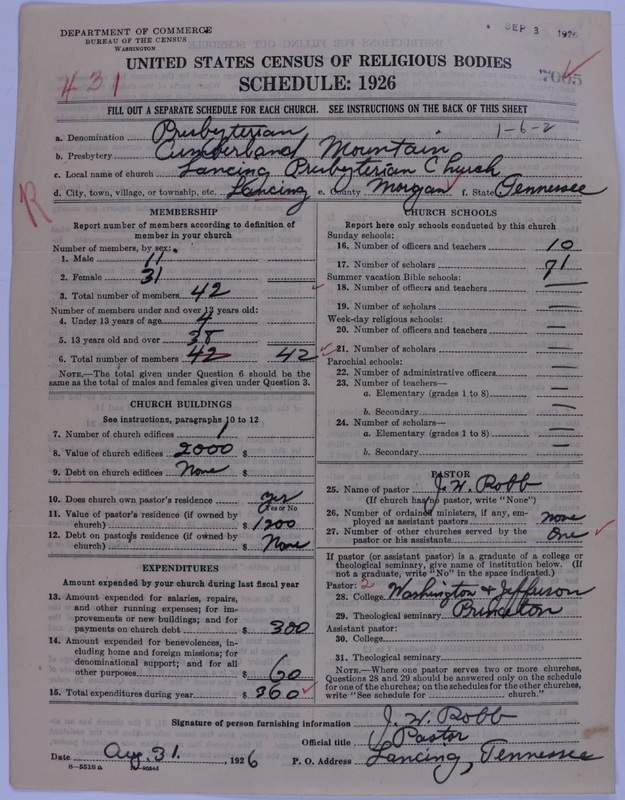 DEPARTMENT OF COMMERCE
BUREAU OF THE CENSUS
WASHINGTON
SEP 3 1926
UNITED STATES CENSUS OF RELIGIOUS BODIES
431
SCHEDULE: 1926
7005
FILL OUT A SEPARATE SCHEDULE FOR EACH CHURCH. SEE INSTRUCTIONS ON THE BACK OF THIS SHEET
a. Denomination Presbyterian 1-6-2
b. Presbytery Cumberland Mountain
c. Local name of church Lancing Presbyterian Church
d. City, town, village, or township, etc. Lancing e. County Morgan f. State Tennessee
R
MEMBERSHIP
Report number of members according to definition of
member in your church
Number of members, by sex:
1. Male 11
2. Female 31
3. Total number of members 42
Number of members under and over 13 years old:
4. Under 13 years of age 4
5. 13 years old and over 38
6. Total number of members 42 42
NOTE.—The total given under Question 6 should be the
same as the total of males and females given under Question 3.
CHURCH BUILDINGS
See instructions, paragraphs 10 to 12
7. Number of church edifices 1
8. Value of church edifices 2000 $
9. Debt on church edifices None $
10. Does church own pastor's residence yes
Yes or No
11. Value of pastor's residence (if owned by
church) $ 1200
12. Debt on pastor's residence (if owned by
church) $ None
EXPENDITURES
Amount expended by your church during last fiscal year
13. Amount expended for salaries, repairs,
and other running expenses; for im-
provements or new buildings; and for
payments on church debt $ 300
14. Amount expended for benevolences, in-
cluding home and foreign missions; for
denominational support; and for all
other purposes $ 60
15. Total expenditures during year $ 360
CHURCH SCHOOLS
Report here only schools conducted by this church
Sunday schools:
16. Number of officers and teachers 10
17. Number of scholars 71
Summer vacation Bible schools:
18. Number of officers and teachers —
19. Number of scholars —
Week-day religious schools:
20. Number of officers and teachers —
21. Number of scholars —
Parochial schools:
22. Number of administrative officers —
23. Number of teachers—
a. Elementary (grades 1 to 8) —
b. Secondary —
24. Number of scholars—
a. Elementary (grades 1 to 8) —
b. Secondary —
PASTOR
25. Name of pastor J. W. Robb
(If church has no pastor, write "None")
26. Number of ordained ministers, if any, em-
ployed as assistant pastors none
27. Number of other churches served by the
pastor or his assistants One
If pastor (or assistant pastor) is a graduate of a college or
theological seminary, give name of institution below. (If
not a graduate, write "No" in the space indicated.)
Pastor: 2
28. College Washington & Jefferson
29. Theological seminary Princeton
Assistant pastor:
30. College
31. Theological seminary
NOTE.—Where one pastor serves two or more churches,
Questions 28 and 29 should be answered only on the schedule
for one of the churches; on the schedules for the other churches,
write "See schedule for ............ church."
Signature of person furnishing information J. W. Robb
Official title Pastor
Date Aug. 31. , 1926 P. O. Address Lancing, Tennessee
8—5518 a